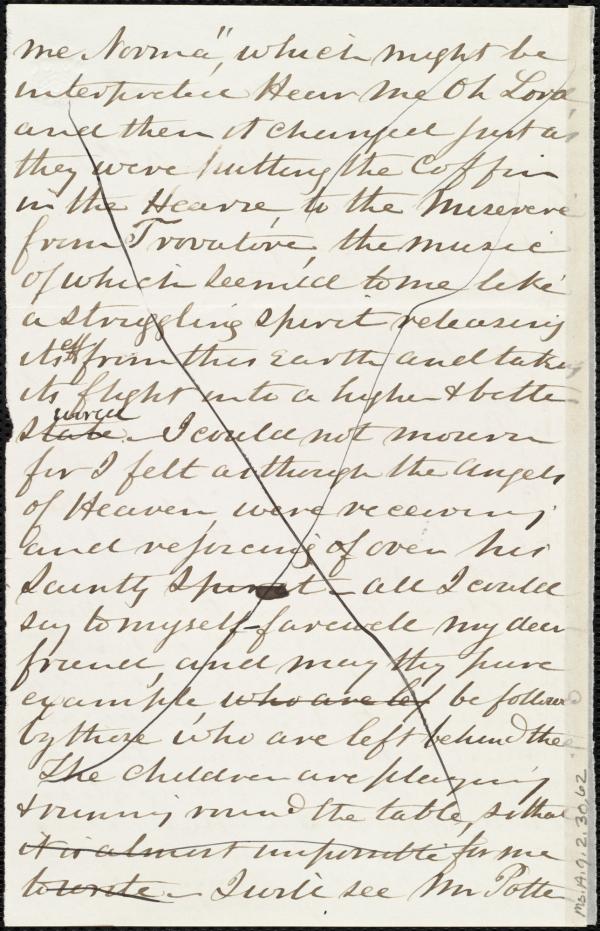 me Norma", which might be
interpreted Hear Me Oh Lord
and then it changed just as
they were putting the Coffin
in the Hearse, to the Miserere
from Trovatore, the music
of which seem'd to me like
a struggling spirit releasing
itself from this Earth and taking
its flight into a higher & better
world
state. I could not mourn
for I felt as though the Angels
of Heaven, were receiving
and rejoicing of over his
Saintly Spirit - all I could
say to myself - farewell my dear
friend, and may thy pure
example who are lef be followed
by those who are left behind thee
The children are playing
& running round the table, so that
it is almost impossible for me
to write - I will see Mr Potte
Ms.A.9.2.30,62